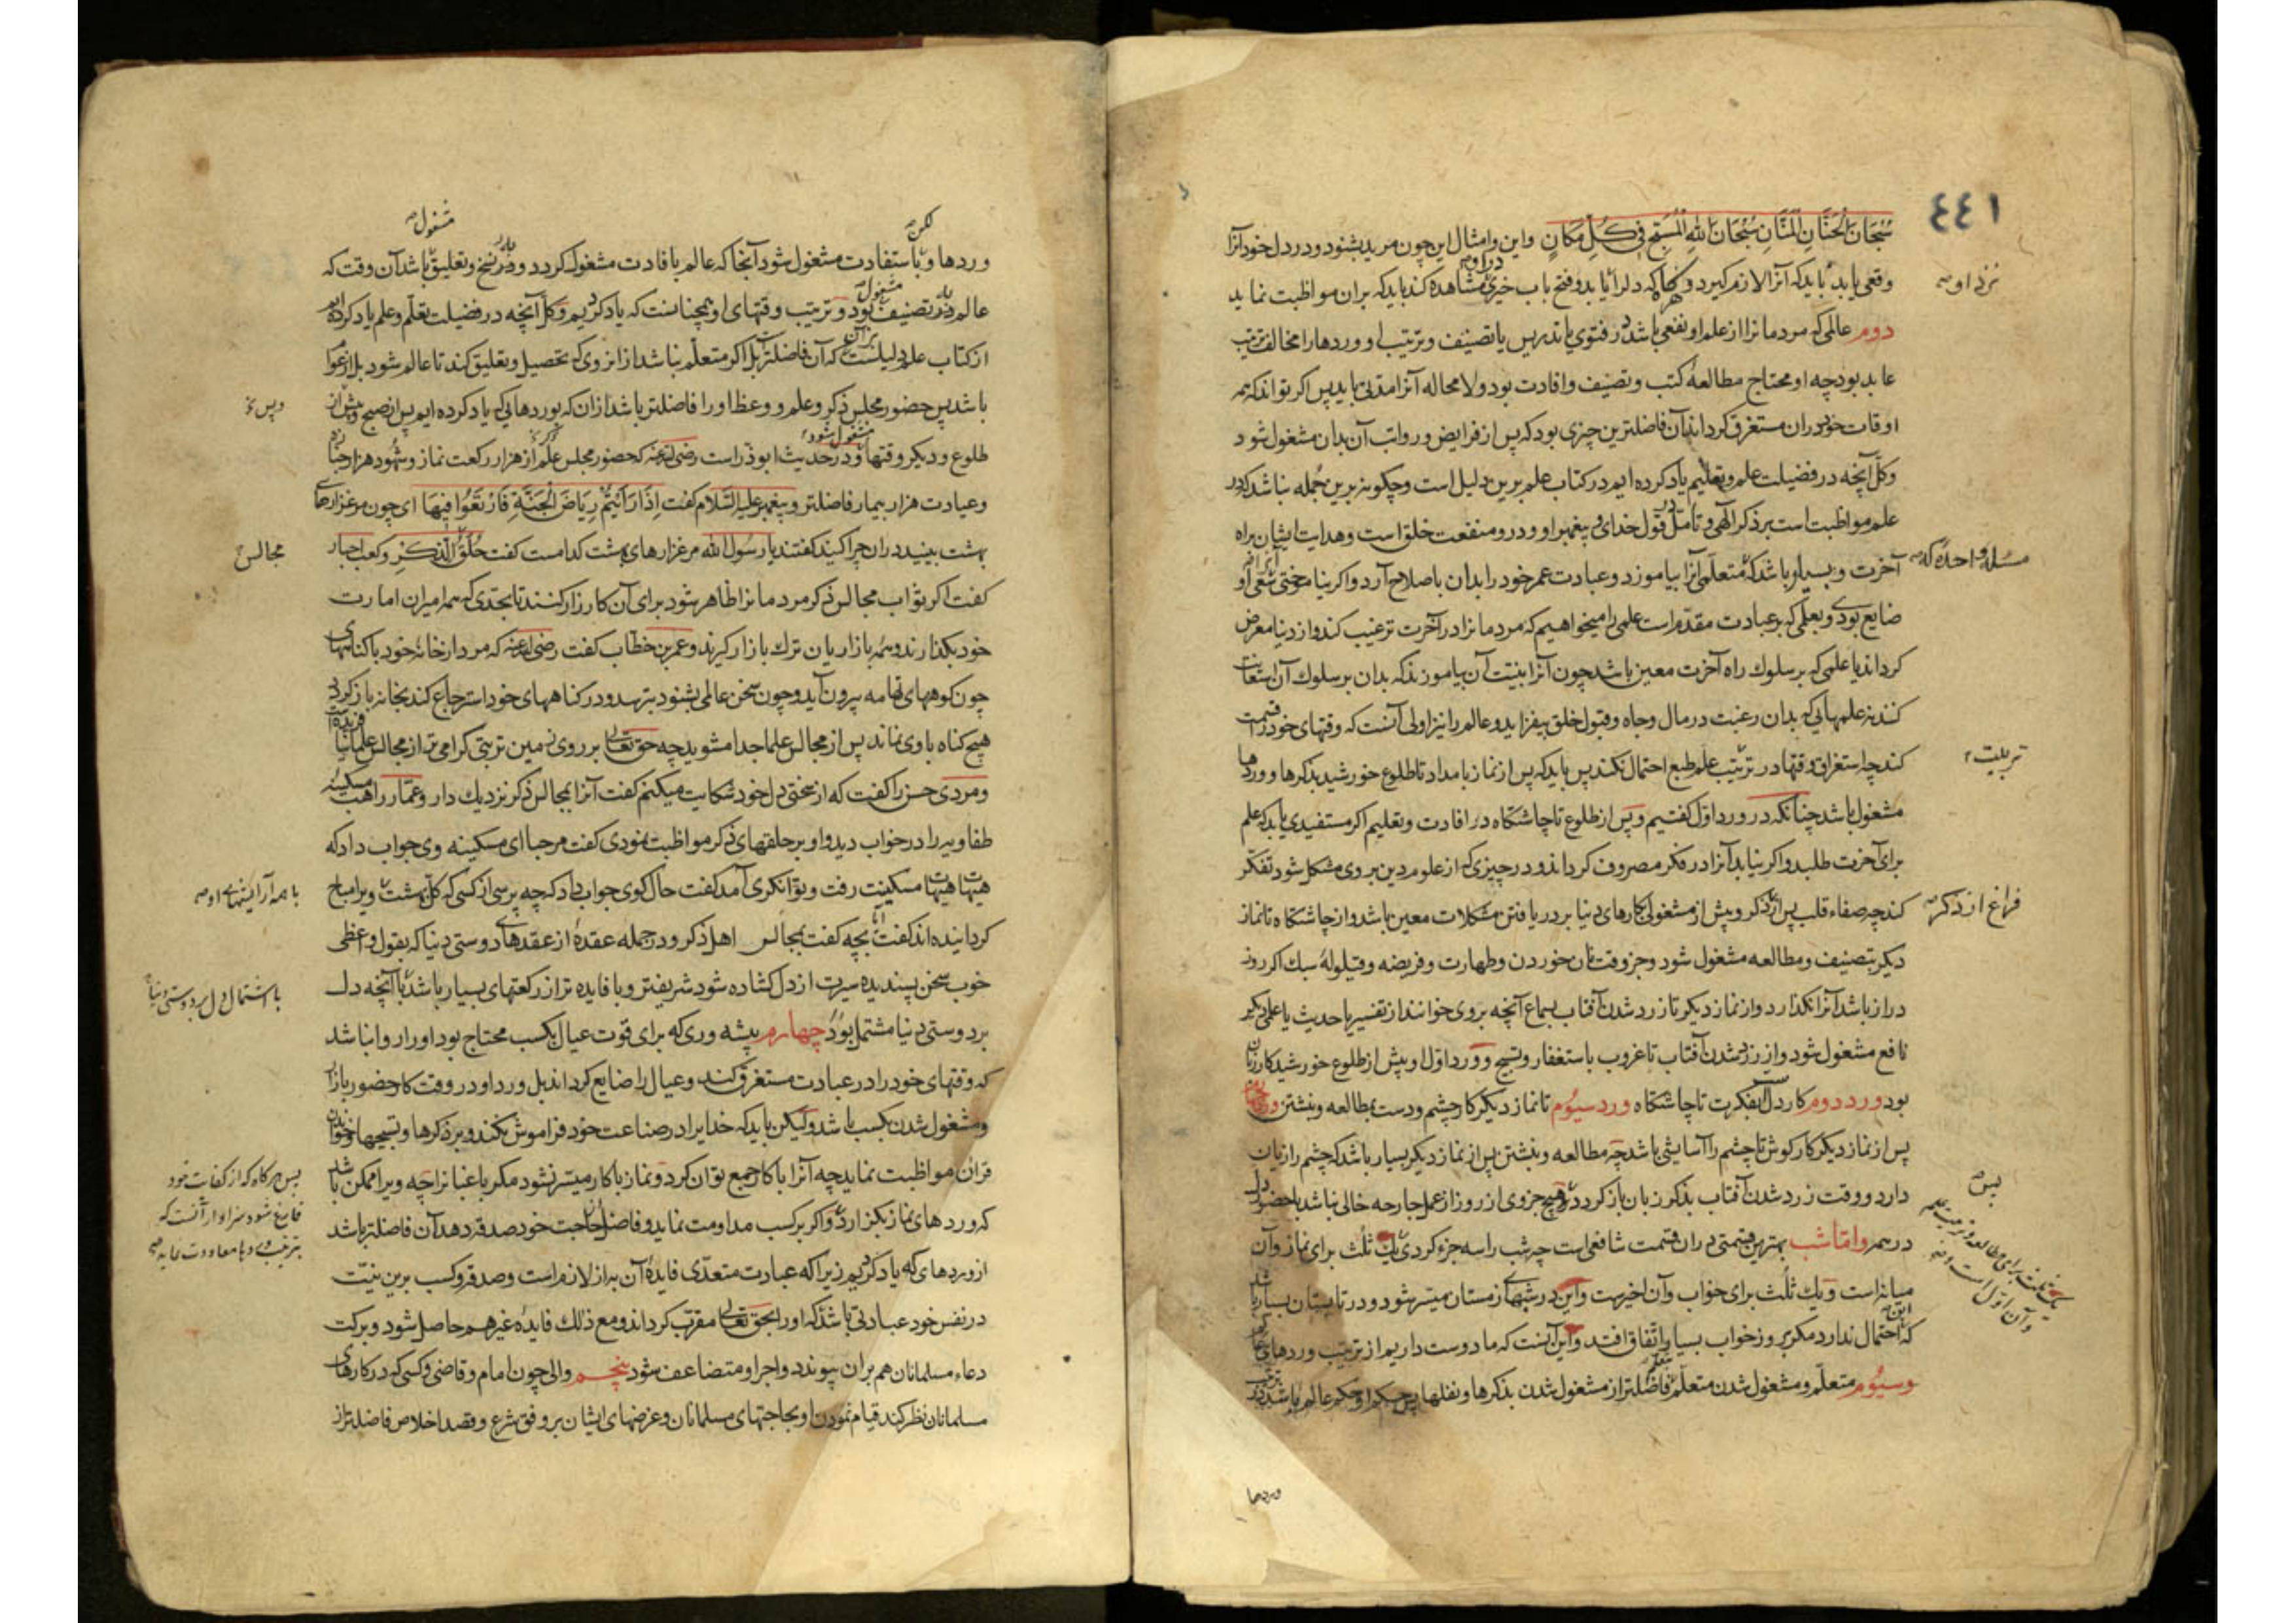 ٤٤١
سُبْحَانَ الْحَنَّانِ الْمَنَّانِ سُبْحَانَ اللهِ الْمُسَبَّحِ فِي كُلِّ مَكَانٍ واین وامثال این چون مرید بشنود ودر دل خود آنرا
وقعی یابد باید که آنرا لازم گیرد و هرگاه که دل را یابد وفتح باب خیری مشاهده کند باید که بران مواظبت نماید
نزد او
در او
دوم عالمی که مردمانرا از علم او نفعی باشد در فتوی یا تدریس یا تصنیف وترتیب او وردها را مخالف ترتیب
عابد بود چه او محتاج مطالعهٔ کتب وتصنیف وافادت بود ولا محاله آنرا مدتی باید پس اگر تواند که همه
اوقات خود دران مستغرق گرداند آن فاضلترین چیزی بود که پس از فرایض ورواتب آن بدان مشغول شود
وکلّ آنچه در فضیلت علم وتعلیم یاد کرده ایم در کتاب علم برین دلیل است وچگونه برین جُمله نباشد که در
علم مواظبت است بر ذکر الهی وتامّل قول خدای وپیغمبر او ودرو منفعت خلق است وهدایت ایشان براه
آخرت وبسیار باشد که متعلّمی آنرا بیاموزد وعبادت عمر خود را بدان باصلاح آرد واگر نیاموختی سعی او
مسئله واحده که
ضایع بودی وبعلمی که بر عبادت مقدّم است علمی را میخواهیم که مردمانرا در آخرت ترغیب کند واز دنیا معرض
گرداند یا علمی که بر سلوك راه آخرت معین باشد چون آنرا بنیّت آن بیاموزند که بدان بر سلوك آن استعانت
کنند نه علمهایی که بدان رغبت در مال وجاه وقبول خلق بیفزاید وعالم را نیز اولی آنست که وقتهای خود را قسمت
کند چه استغراق وقتها در ترتیب علم طبع احتمال نکند پس باید که پس از نماز بامداد تا طلوع خورشید بذکرها ووردها
تربیت
مشغول باشد چنانکه در ورد اوّل گفتیم وپس از طلوع تا چاشتگاه در افادت وتعلیم اگر مستفیدی یابد که علم
برای آخرت طلبد واگر نیابد آنرا در فکر مصروف گرداند ودر چیزی که از علوم دین بر وی مشکل شود تفکّر
کند چه صفاء قلب پس از ذکر وپیش از مشغولی بکارهای دنیا بر دریافتن مشکلات معین باشد واز چاشتگاه تا نماز
فراغ از ذکر
دیگر بتصنیف ومطالعه مشغول شود وجز وقت نان خوردن وطهارت وفریضه وقیلولهٔ سبك اگر روز
دراز باشد آنرا نگذارد واز نماز دیگر تا زرد شدن آفتاب بسماع آنچه بر وی خوانند از تفسیر یا حدیث یا علمی دیگر
نافع مشغول شود واز زرد شدن آفتاب تا غروب باستغفار وتسبیح وورد اوّل او پیش از طلوع خورشید کار زبان
بود ورد دوم کار دل بفکرت تا چاشتگاه ورد سیوم تا نماز دیگر کار چشم ودست بمطالعه ونبشتن ورد چهارم
پس از نماز دیگر کار گوش تا چشم را آسایشی باشد چه مطالعه ونبشتن پس از نماز دیگر بسیار باشد که چشم را زیان
دارد ووقت زرد شدن آفتاب بذکر زبان باز گردد وهیچ جزوی از روز از عمل جارحه خالی نباشد با حضور دل
پس
در همه وامّا شب بهترین قسمتی دران قسمت شافعی است چه شب را سه جزء کردی یك ثلث برای نماز وآن
یک ثلث برای مطالعه وترتیب علم
وآن اول است و
میانه است ویك ثلث برای خواب وآن اخیرست واین در شبهای زمستان میسّر شود ودر تابستان بسیار باشد
که احتمال ندارد مگر بروز خواب بسیار اتّفاق افتد واین آنست که ما دوست داریم از ترتیب وردهای عالم
وسیوم متعلّم ومشغول شدن متعلّم فاضلتر از مشغول شدن بذکرها ونفلها پس حکم او حکم عالم باشد در ترتیب
وردها
لکن
مشغول
وردها وباستفادت مشغول شود آنجا که عالم بافادت مشغول گردد ودر نسخ وتعلیق باشد آن وقت که
عالم در تصنیف بود وترتیب وقتهای او همچنانست که یاد کردیم وکلّ آنچه در فضیلت تعلّم وعلم یاد کرده ایم
از کتاب علم دلیلست بر آن که آن فاضلتر بل اگر متعلّم نباشد ازانروی که تحصیل وتعلیق کند تا عالم شود بل از عوام
باشد پس حضور مجلس ذکر وعلم ووعظ او را فاضلتر باشد ازان که بوردهایی که یاد کرده ایم پس از صبح وپیش از
وپس
مشغول شود
طلوع ودیگر وقتها ودر حدیث ابوذر است رضی الله عنه که حضور مجلس علم از هزار رکعت نماز وشهود هزار جنازه
وعیادت هزار بیمار فاضلتر وپیغمبر علیه السّلام گفت اِذَا رَاَیْتُمْ رِیَاضَ الْجَنَّةِ فَارْتَعُوا فِیهَا ای چون مرغزارهای
بهشت ببینید دران چرا کنید گفتند یا رسول الله مرغزارهای بهشت کدامست گفت حِلَقُ الذِّکْرِ وکعب احبار
مجالس
گفت اگر ثواب مجالس ذکر مردمانرا ظاهر شود برای آن کارزار کنند تا بحدّی که همه امیران امارت
خود بگذارند وهمه بازاریان ترك بازار گیرند وعمر بن خطّاب گفت رضی الله عنه که مرد از خانهٔ خود با گناههای
چون کوههای تهامه بیرون آید وچون سخن عالمی بشنود بترسد ودر گناههای خود استرجاع کند بخانه باز گردد
هیچ گناه باوی نماند پس از مجالس علما جدا مشوید چه حق تعالی بر روی زمین تربتی گرامی تر از مجالس علما نیافریده است
ومردی حسن را گفت که از سختی دل خود شکایت میکنم گفت آنرا بمجالس ذکر نزدیك دار وعمّار راهب مسکینهٔ
طفاویه را در خواب دید واو بر حلقهای ذکر مواظبت نمودی گفت مرحبا ای مسکینه وی جواب داد که
هیهات هیهات مسکینت رفت وتوانگری آمد گفت حال گوی جواب داد که چه پرسی از کسی که کلّ بهشت ویرا مباح
با همه آرایشهای او
گردانیده اند گفت بچه گفت بمجالس اهل ذکر ودر جمله عقدهٔ از عقدهای دوستی دنیا که بقول واعظی
خوب سخن پسندیده سیرت از دل گشاده شود شریفتر وبا فایده تر از رکعتهای بسیار باشد با آنچه دل
با اشتمال دل بر دوستی دنیا
بر دوستی دنیا مشتمل بود چهارم پیشه وری که برای قوت عیال بکسب محتاج بود او را روا نباشد
که وقتهای خود را در عبادت مستغرق کند وعیال را ضایع گرداند بل ورد او در وقت کار حضور بازار
ومشغول شدن بکسب باشد ولیکن باید که خدایرا در صناعت خود فراموش نکند وبر ذکرها وتسبیحها وخواندن
قرآن مواظبت نماید چه آنرا با کار جمع توان کرد ونماز با کار میسّر نشود مگر باغبانرا چه ویرا ممکن باشد
پس هرگاه که از کفایت خود
فارغ شود سزاوار آنست که
بترتیب وردها معاودت نماید
که وردهای نماز بگزارد واگر بر کسب مداومت نماید وفاضل از حاجت خود صدقه دهد آن فاضلتر باشد
از وردهای که یاد کردیم زیرا که عبادت متعدّی فایدهٔ آن به از لازم است وصدقه وکسب برین نیّت
در نفس خود عبادتی باشد که او را بحق تعالی مقرّب گرداند ومع ذلك فایدهٔ غیر هم حاصل شود وبرکت
دعاء مسلمانان هم بران پیوندد واجر او متضاعف شود پنجم والی چون امام وقاضی وکسی که در کارهای
مسلمانان نظر کند قیام نمودن او بحاجتهای مسلمانان وغرضهای ایشان بر وفق شرع وقصد اخلاص فاضلتر از